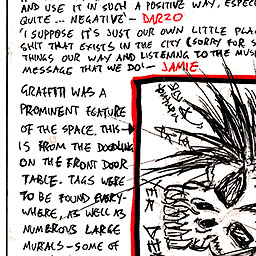 AND USE IT IN SUCH A POSITIVE WAY, ESPEC
QUITE ... NEGATIVE' - DARZO
'I SUPPOSE IT'S JUST OUR OWN LITTLE PLA
SHIT THAT EXISTS IN THE CITY (SORRY FOR S
THINGS OUR WAY AND LISTENING TO THE MUS
MESSAGE THAT WE DO' - JAMIE
GRAFFITI WAS A
PROMINENT FEATURE
OF THE SPACE. THIS →
IS FROM THE DOODLING
ON THE FRONT DOOR
TABLE. TAGS WERE
TO BE FOUND EVERY-
WHERE, AS WELL AS
NUMEROUS LARGE
MURALS - SOME OF